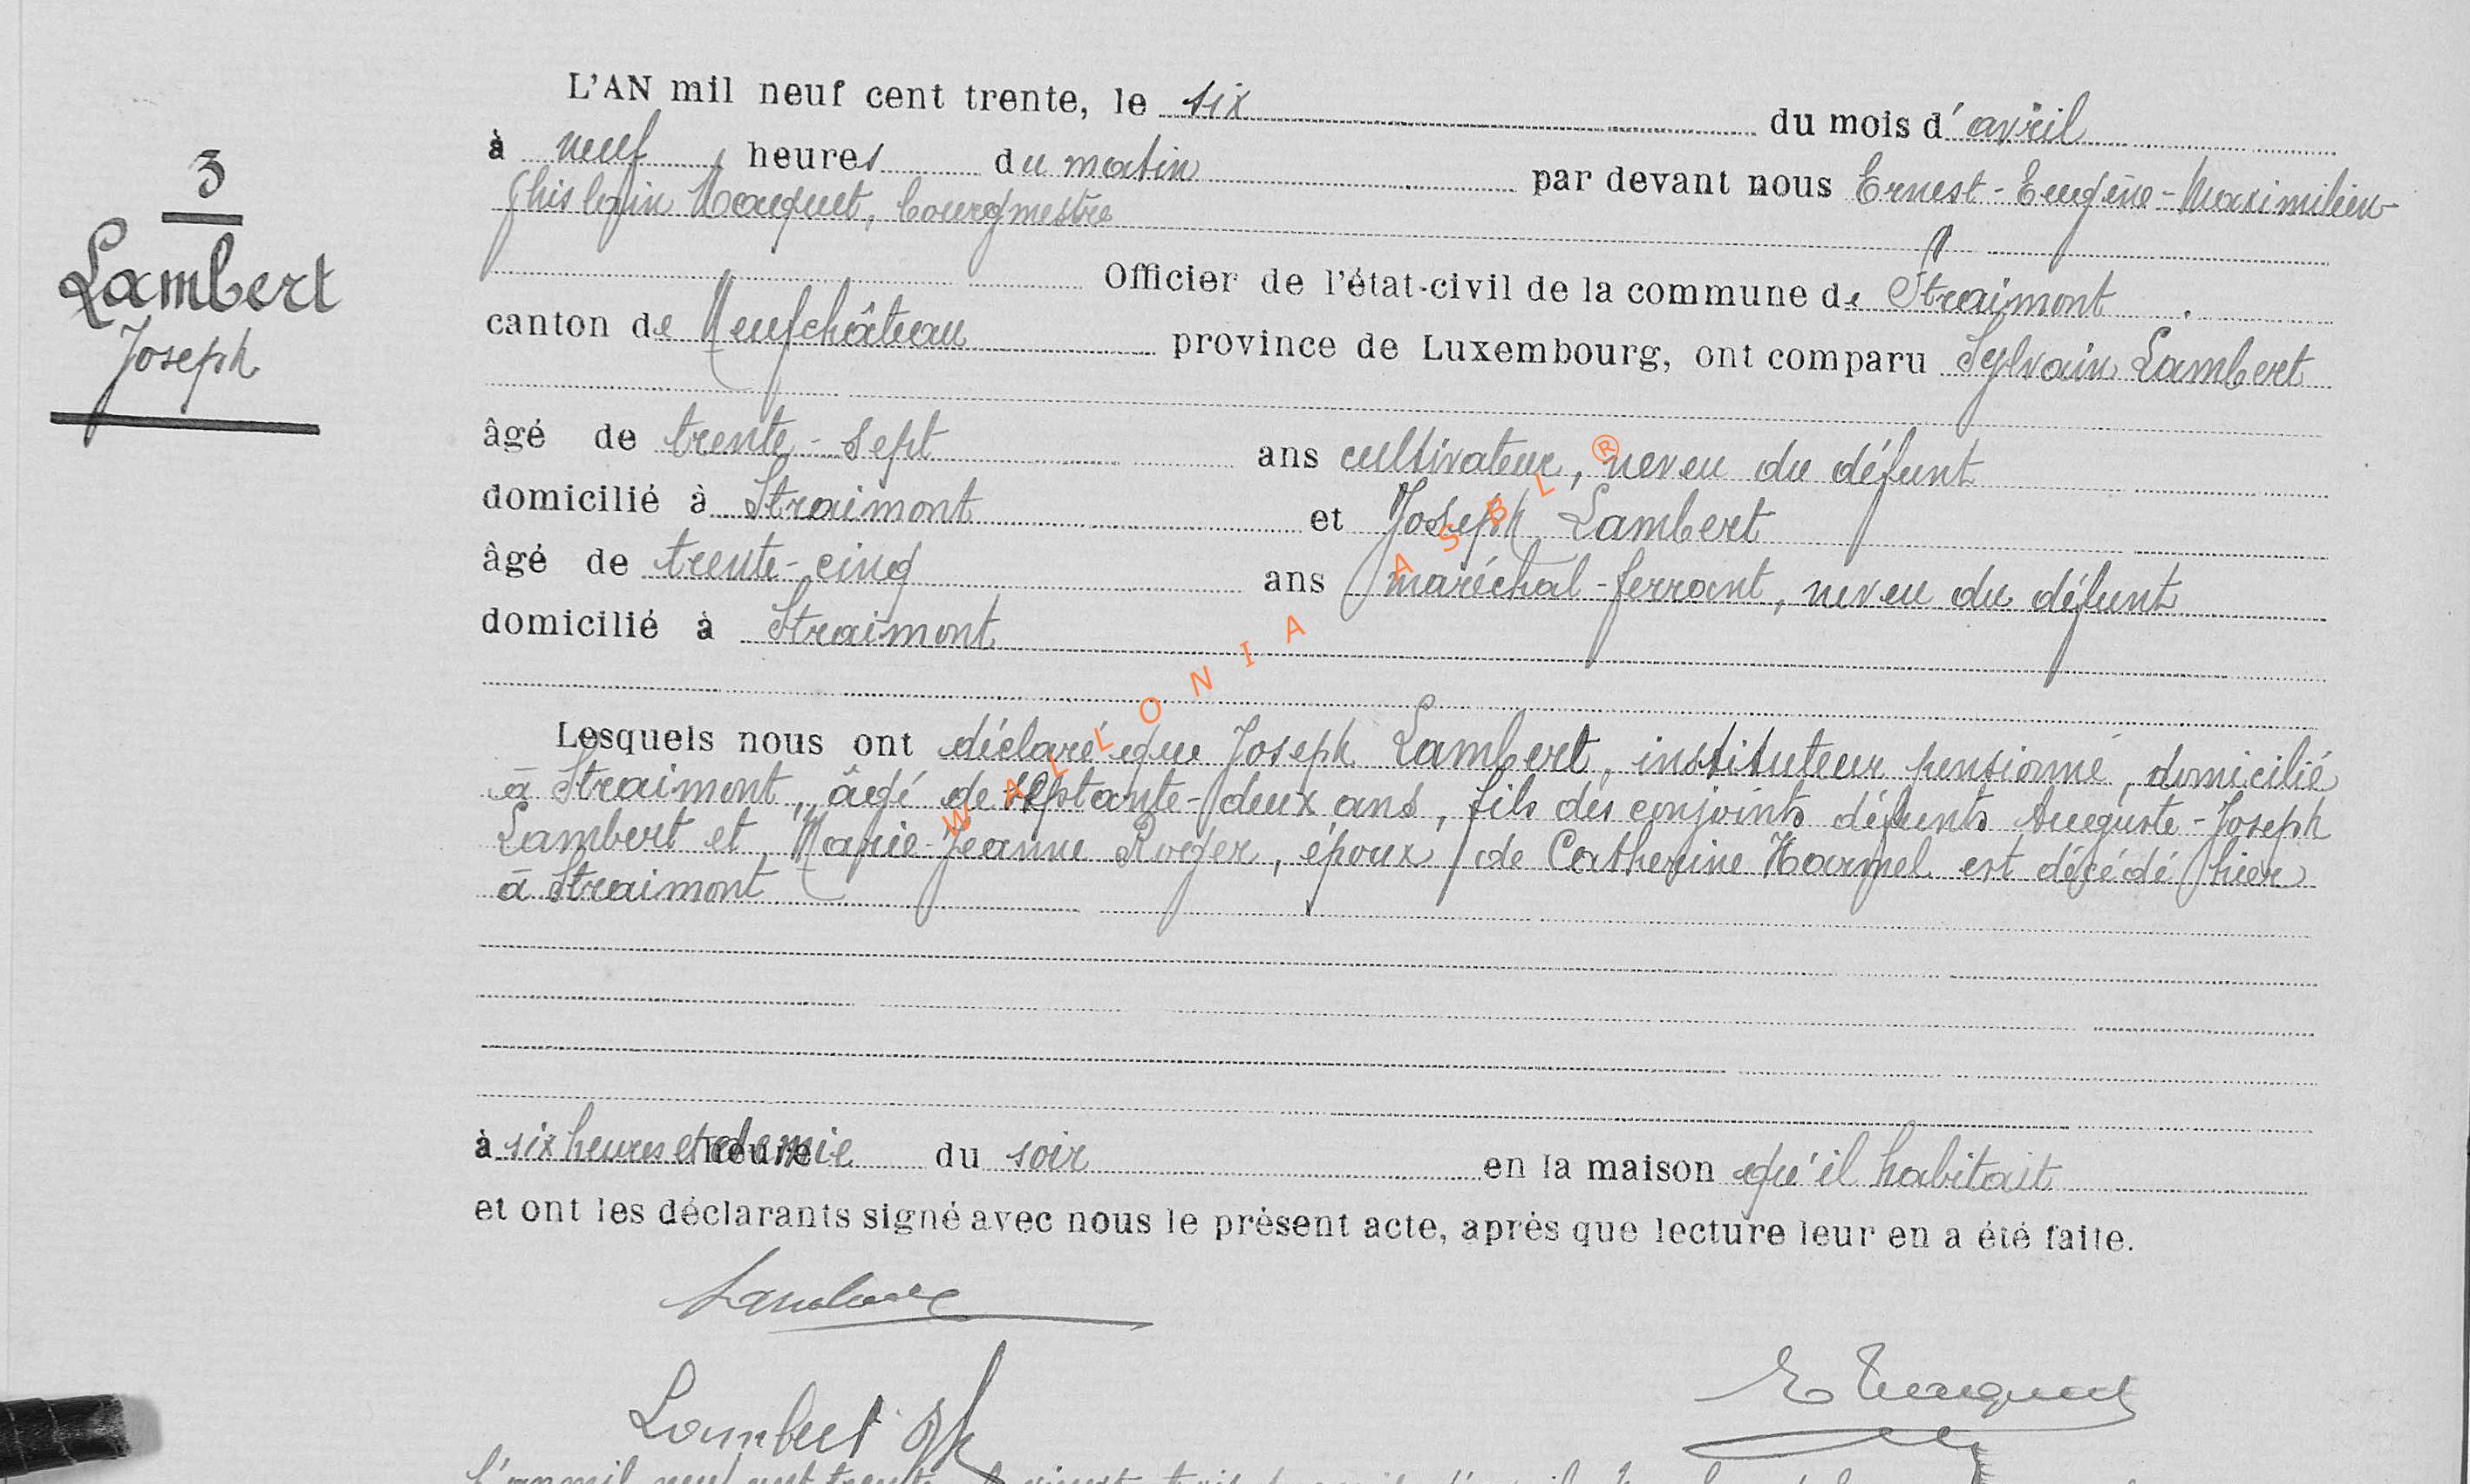 3
Lambert
Joseph
L'AN mil neuf cent trente, le six du mois d'avril
à neuf heures du matin par devant nous Ernest-Eugène-Maximilien-
Ghislain Hocquet, bourgmestre
Officier de l'état-civil de la commune de Straimont.
canton de Neufchâteau province de Luxembourg, ont comparu Sylvain Lambert
âgé de trente-sept ans cultivateur, neveu du défunt
domicilié à Straimont et Joseph Lambert
âgé de trente-cinq ans maréchal-ferrant, neveu du défunt
domicilié à Straimont
Lesquels nous ont déclaré que Joseph Lambert, instituteur pensionné, domicilié
à Straimont, âgé de septante-deux ans, fils des conjoints défunts Auguste-Joseph
Lambert et Marie-Jeanne Roger, époux de Catherine Harpel est décédé hier
à Straimont
à six heures et demie heure du soir en la maison qu'il habitait
et ont les déclarants signé avec nous le présent acte, après que lecture leur en a été faite.
Lambert
Lambert Jh
WALLONIA ASBL ®